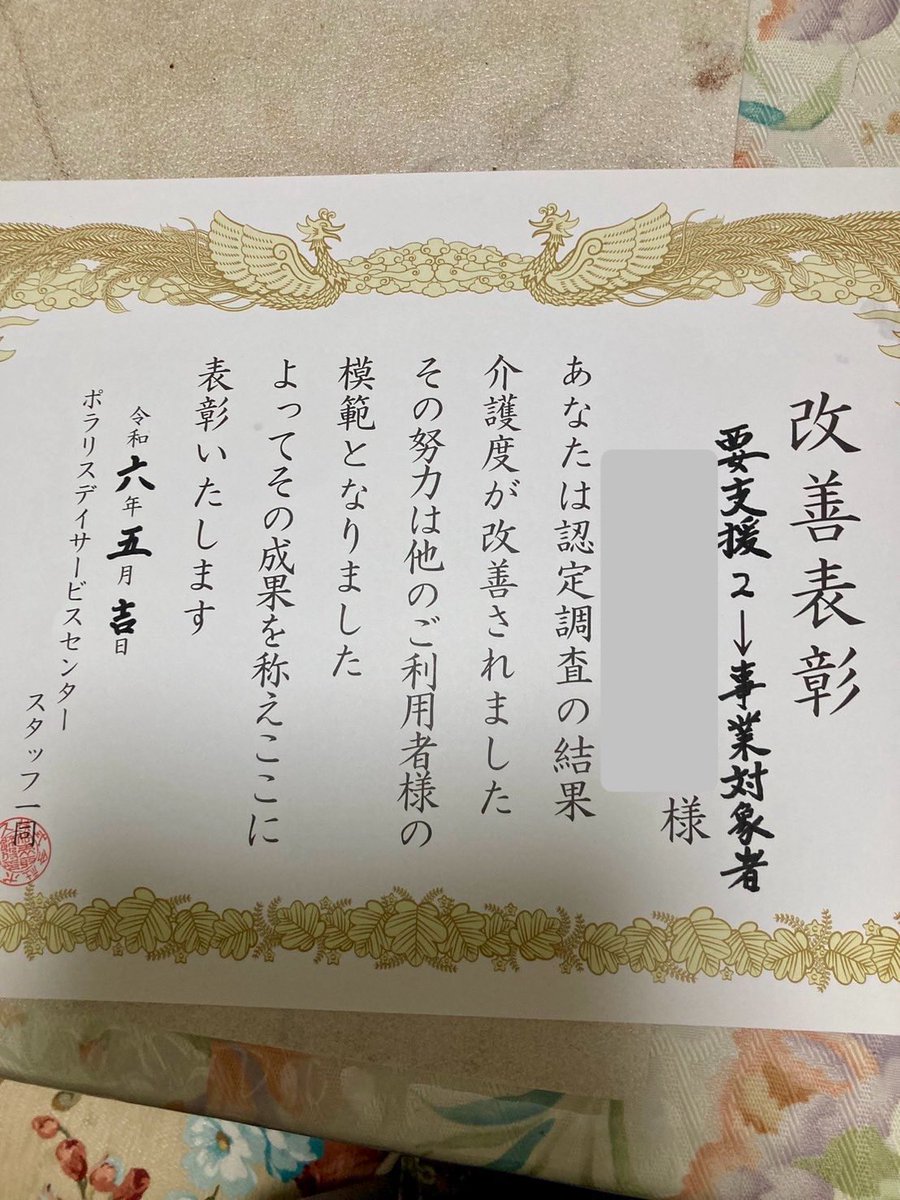 改善表彰
要支援2→事業対象者
様
あなたは認定調査の結果
介護度が改善されました
その努力は他のご利用者様の
模範となりました
よってその成果を称えここに
表彰いたします
令和六年五月吉日
ポラリスデイサービスセンター
スタッフ一同